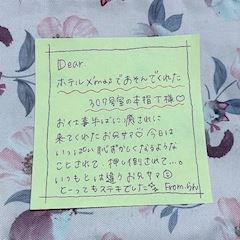 Dear.
ホテルXmasであそんでくれた
307号室の本指丁様♡
おくて事半ばに癒されに
来てくれたお兄サマ♡今日は
いっぱい恥ずかしくなるような
ことされて、押し倒されて…。
いつもとは違うお兄サマ
とーってもステキでした
From.りん